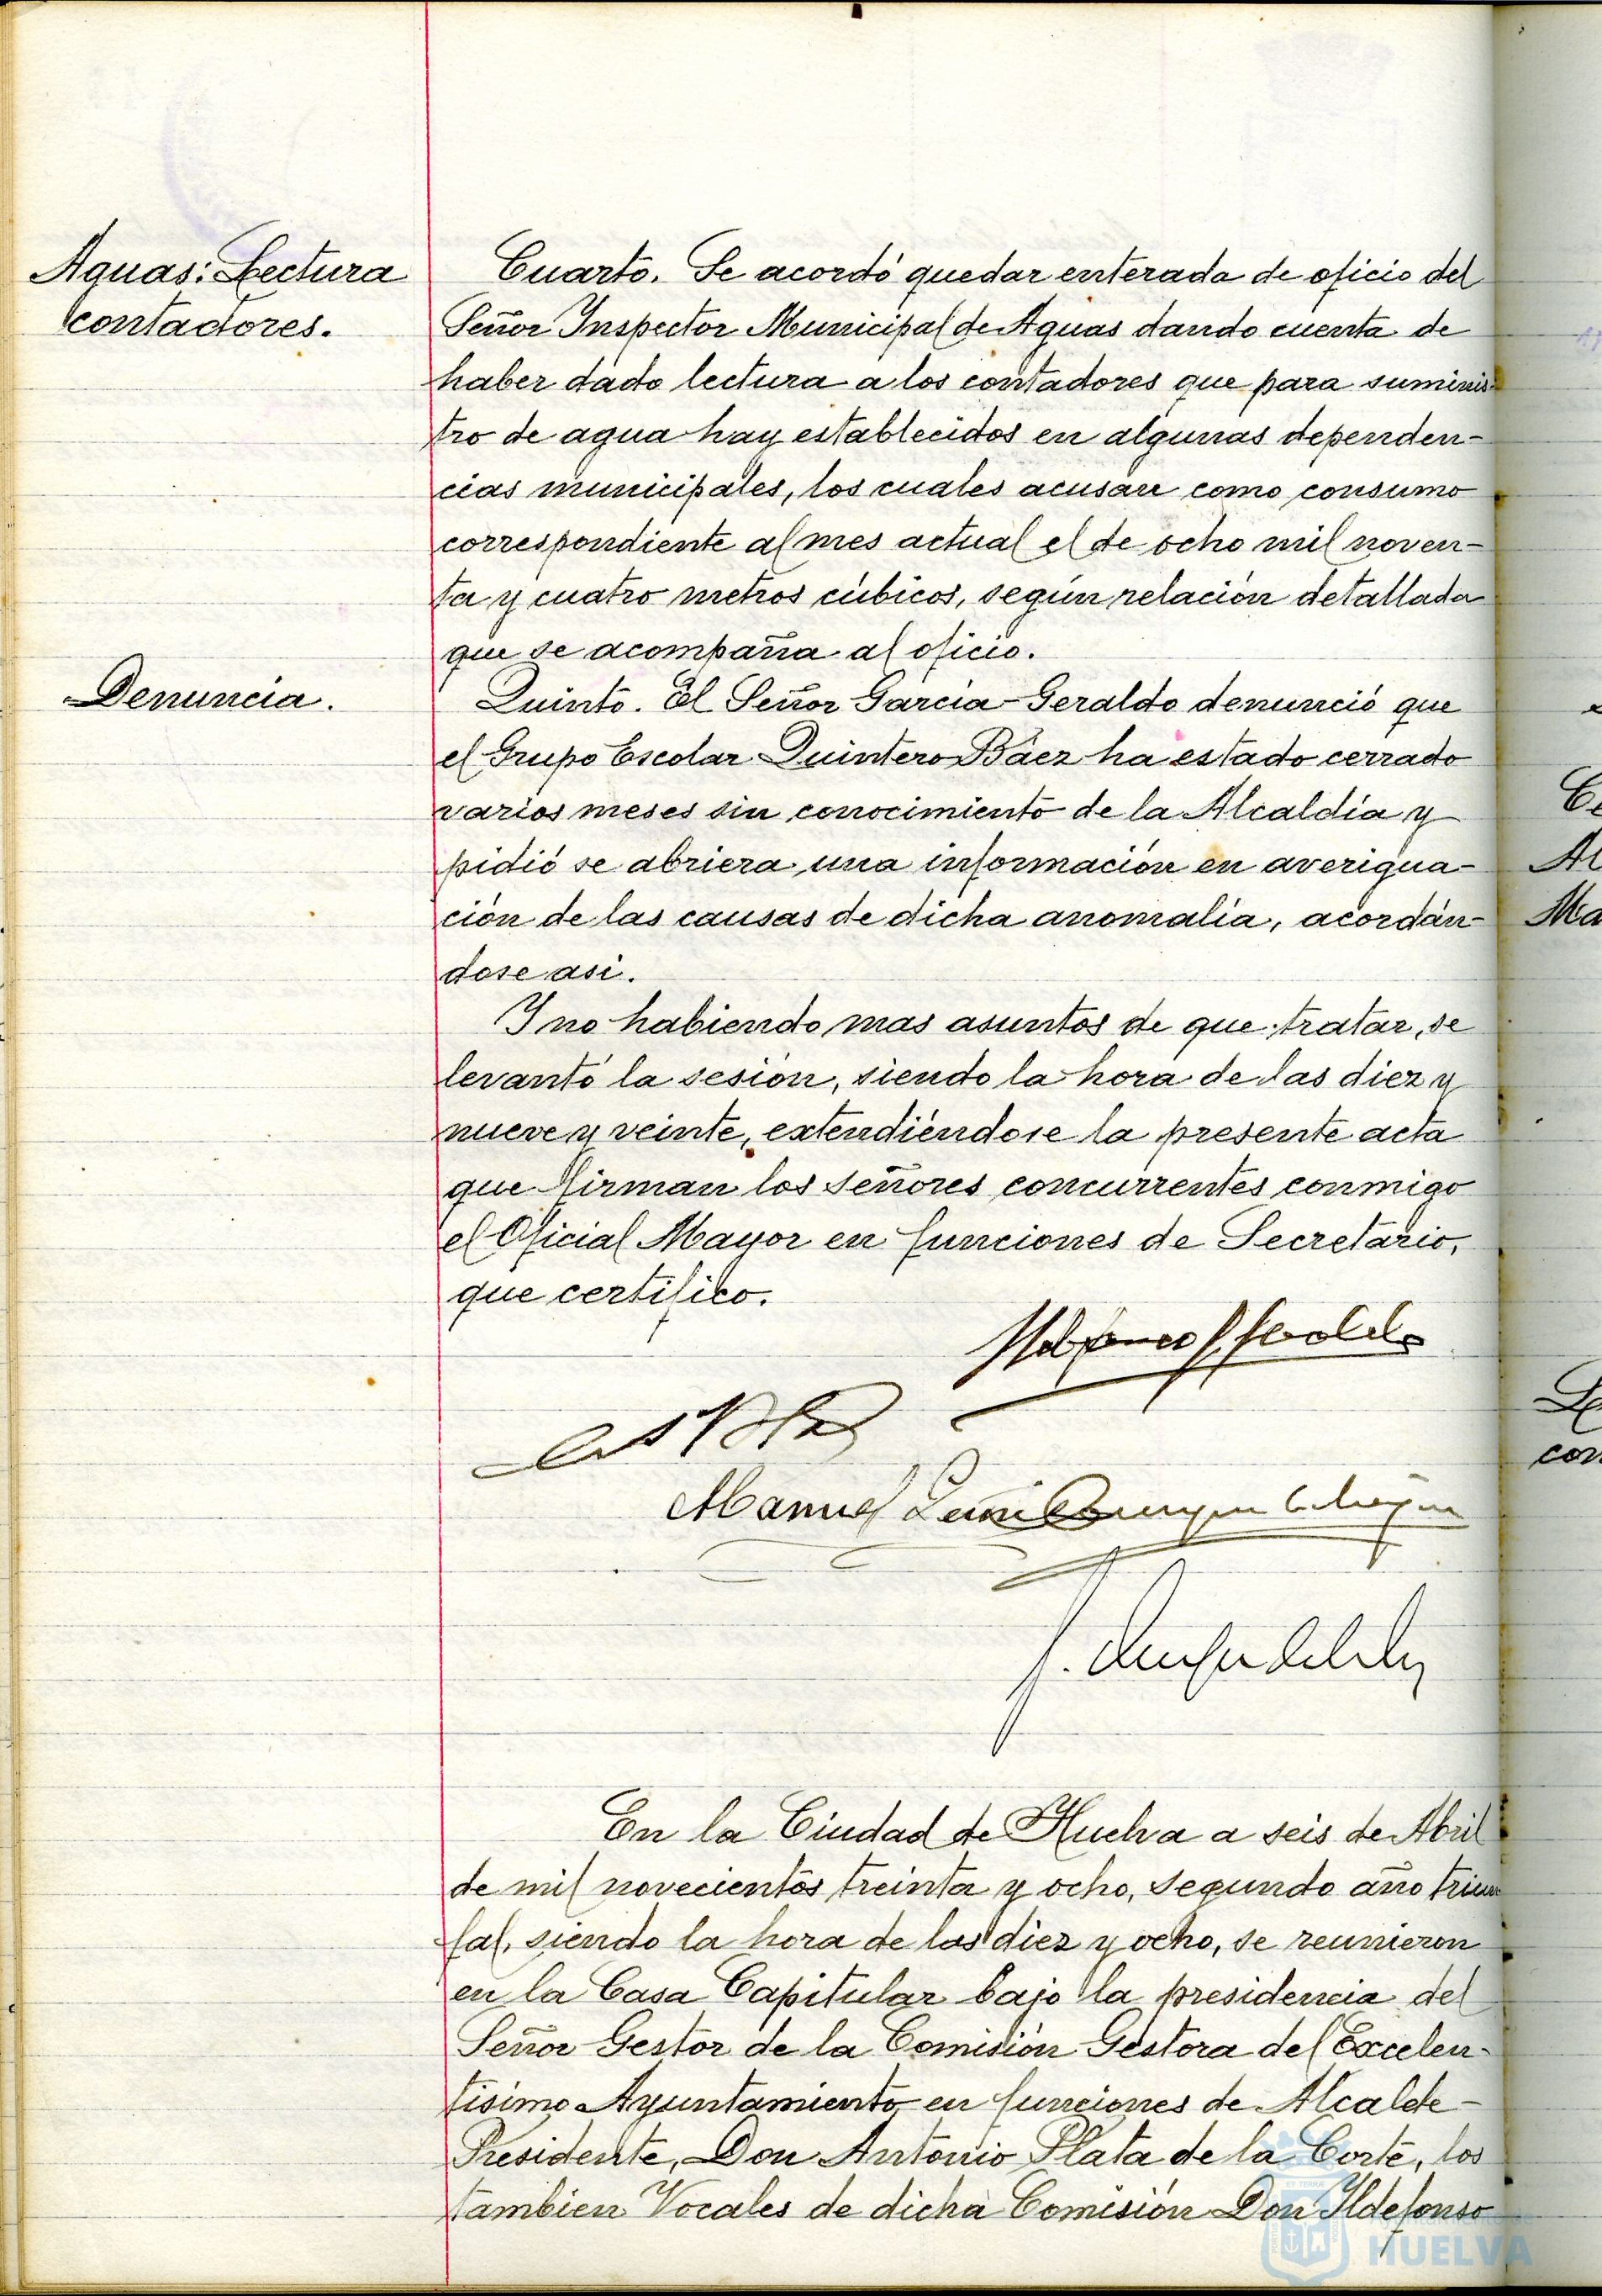 Aguas: Lectura
contadores.
Cuarto. Se acordó quedar enterada de oficio del
Señor Inspector Municipal de Aguas dando cuenta de
haber dado lectura a los contadores que para suminis-
tro de agua hay establecidos en algunas dependen-
cias municipales, los cuales acusan como consumo
correspondiente al mes actual el de ocho mil noven-
ta y cuatro metros cúbicos, según relación detallada
que se acompaña al oficio.
Denuncia.
Quinto. El Señor García-Geraldo denunció que
el Grupo Escolar Quintero Báez ha estado cerrado
varios meses sin conocimiento de la Alcaldía y
pidió se abriera una información en averigua-
ción de las causas de dicha anomalía, acordán-
dose asi.
Y no habiendo mas asuntos de que tratar, se
levantó la sesión, siendo la hora de las diez y
nueve y veinte, extendiéndose la presente acta
que firman los señores concurrentes conmigo
el Oficial Mayor en funciones de Secretario,
que certifico.
Manuel
En la Ciudad de Huelva a seis de Abril
de mil novecientos treinta y ocho, segundo año triun
fal, siendo la hora de las diez y ocho, se reunieron
en la Casa Capitular bajo la presidencia del
Señor Gestor de la Comisión Gestora del Excelen-
tisimo Ayuntamiento en funciones de Alcalde-
Presidente, Don Antonio Plata de la Corte, los
tambien Vocales de dicha Comisión Don Ildefonso
HUELVA